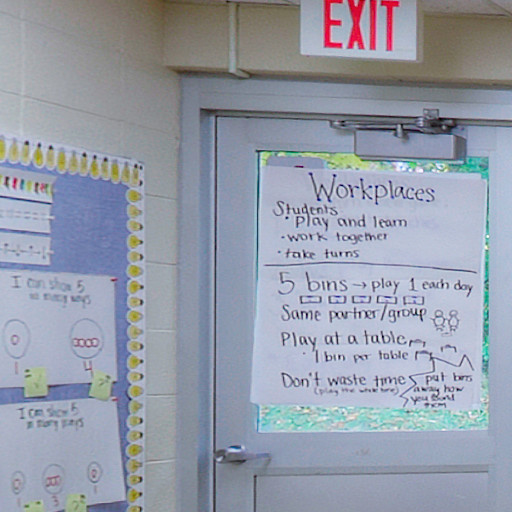 EXIT
Workplaces
Students
• play and learn
• work together
• take turns
5 bins → play 1 each day
Same partner/group
Play at a table
• 1 bin per table
Don't waste time
(play the whole time)
put bins
away how
you found
them
I can show 5
in many ways
0
1
4
I can show 5
in many ways
0
1
3
0
1